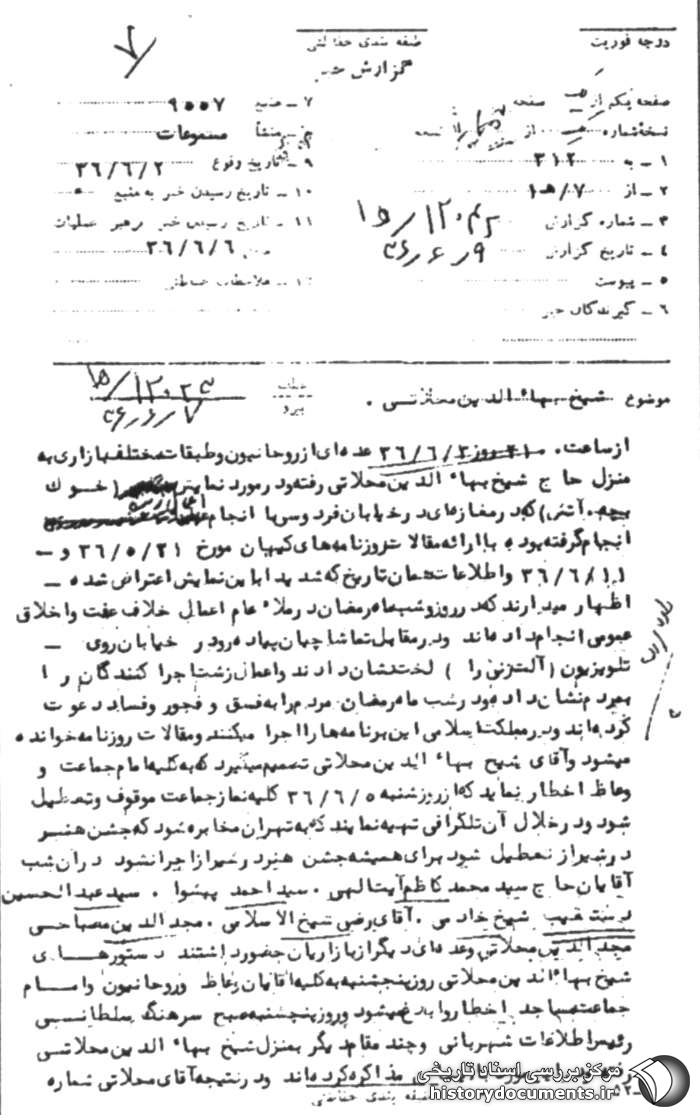 درجه فوریت
طبقه بندی حفاظتی
گزارش خبر
صفحه یکم از صفحه
نسخه شماره از نسخه
۱ ـ به ۳۱۲
۲ ـ از ۷/ه ۱
۳ ـ شماره گزارش
۴ ـ تاریخ گزارش ۳۶٫۶٫۹
۵ ـ پیوست
۶ ـ گیرندگان خبر
۷ ـ منبع ۹۰۰۷
۸ ـ منشأ مسموعات
۹ ـ تاریخ وقوع ۳۶/۶/۲
۱۰ ـ تاریخ رسیدن خبر به منبع
۱۱ ـ تاریخ رسیدن خبر به رهبر عملیات
۳۶/۶/۶
۱۲ ـ ملاحظات حفاظتی
موضوع شیخ بهاء الدین محلاتی .
عطف
پیرو
۳۶٫۶٫۷
از ساعت ۲۱ روز ۳۶/۶/۲ عده‌ای از روحانیون و طبقات مختلف بازاری به
منزل حاج شیخ بهاء الدین محلاتی رفته و در مورد نمایش (خوک
بچه آتش) که در مغازه‌ای در خیابان فردوسی با انجام اعمال زننده
انجام گرفته بود با ارائه مقالات روزنامه‌های کیهان مورخ ۳۶/۵/۳۱ و ـ
۳۶/۶/۱ واطلاعات همان تاریخ که شدیدا باین نمایش اعتراض شده ـ
اظهار میدارند که در روز و شب ماه رمضان در ملاء عام اعمال خلاف عفت واخلاق
عمومی انجام داده‌اند و در مقابل تماشاچیان پیاده رو در خیابان روی ـ
تلویزیون (آلت زنی را ) لخت نشان دادند واعمال زشت اجرا کنندگان را
بمردم نشان داده و در شب ماه رمضان مردم را به فسق و فجور و فساد دعوت
کرده‌اند و در مملکت اسلامی این برنامه‌ها را اجرا میکنند و مقالات روزنامه خوانده
میشود و آقای شیخ بهاء الدین محلاتی تصمیم میگیرد که به کلیه امام جماعت و
وعاظ اخطار نماید که از روز شنبه ۳۶/۶/۵ کلیه نماز جماعت موقوف و تعطیل
شود و در خلال آن تلگرافی تهیه نمایند که به تهران مخابره شود که جشن هنر
در شیراز تعطیل شود برای همیشه جشن هنر در شیراز اجرا نشود در آن شب
آقایان حاج سید محمد کاظم آیت الهی . سید احمد پیشوا . سید عبدالحسین
دست غیب شیخ خادمی . آقای رضی شیخ الاسلامی . مجد الدین مصباحی
مجد الدین محلاتی و عده‌ای دیگر از بازاریان حضور داشتند دستورهای
شیخ بهاء الدین محلاتی روز پنجشنبه به کلیه آقایان وعاظ و روحانیون و امام
جماعت مساجد اخطار و ابلاغ میشود و روز پنجشنبه صبح سرهنگ سلطانی
رئیس اطلاعات شهربانی و چند مقام دیگر بمنزل شیخ بهاء الدین محلاتی
مذاکره کرده‌اند و در نتیجه آقای محلاتی شماره
طبقه بندی حفاظتی
مرکز بررسی اسناد تاریخی
historydocuments.ir